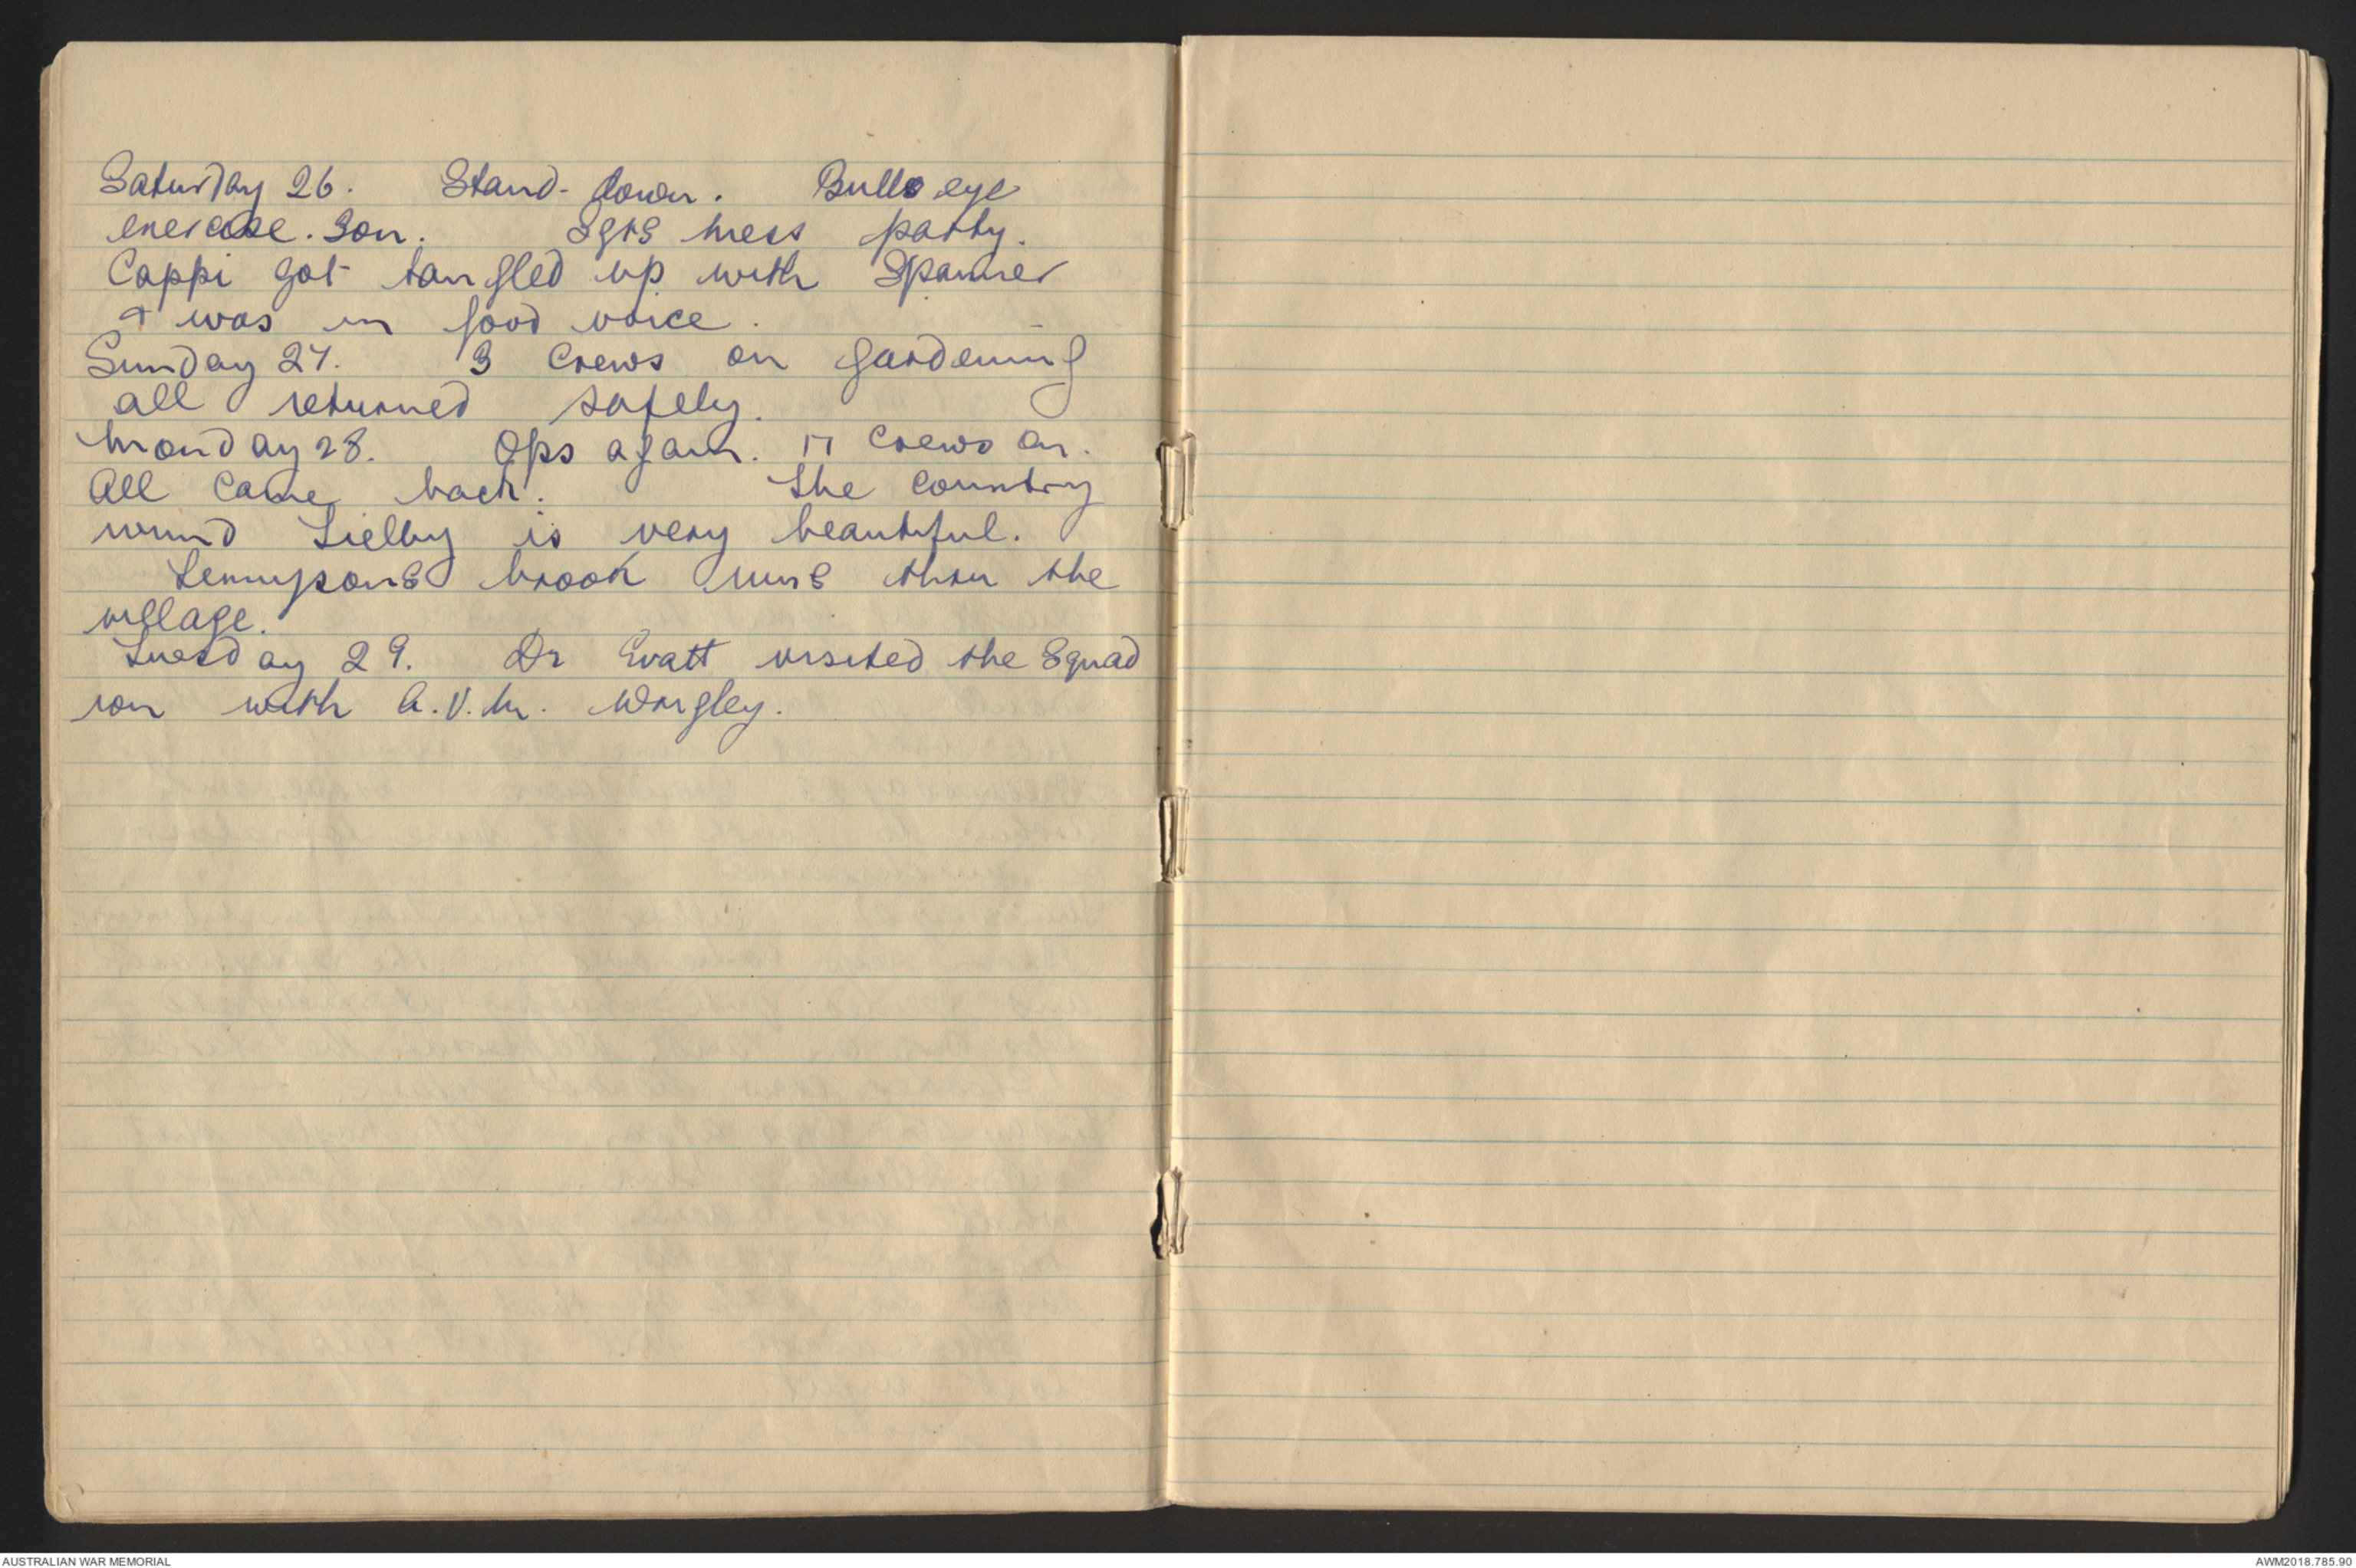 Saturday 26. Stand-down. Bullseye
exercise. 3 on. Sgts mess party.
Cappi got tangled up with Spanner
+ was in good voice.
Sunday 27. 3 crews on gardening
all returned safely.
Monday 28. Ops again. 17 crews on.
All came back. The country
round Tielby is very beautiful.
Tennysons brook runs thru the
village.
Tuesday 29. Dr Evatt visited the Squad
ron with A.V.M. Wrigley.
AUSTRALIAN WAR MEMORIAL
AWM2018.785.90